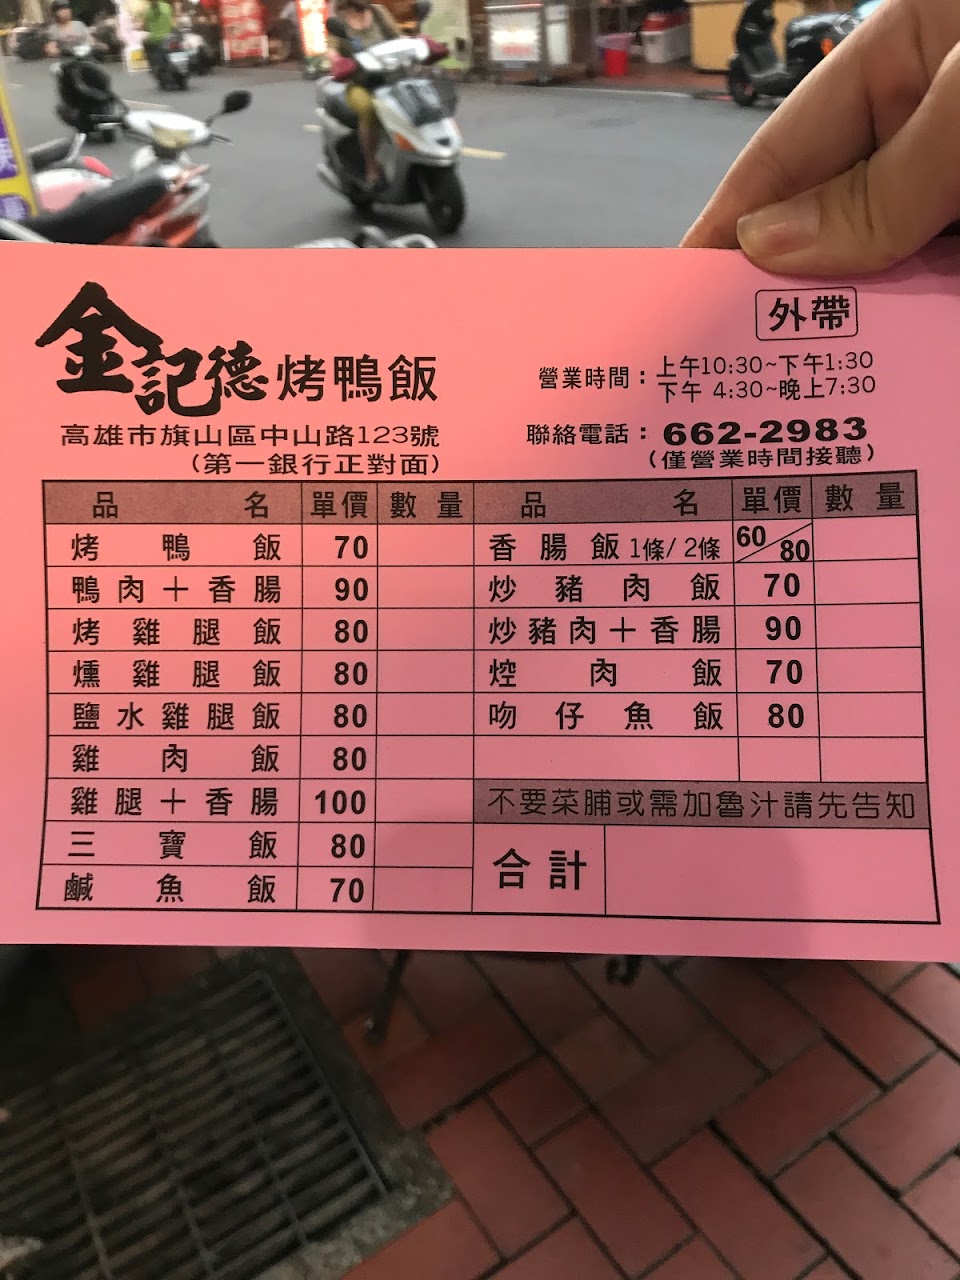 外帶
金記德烤鴨飯
營業時間：上午10:30~下午1:30
下午 4:30~晚上7:30
高雄市旗山區中山路123號
(第一銀行正對面)
聯絡電話：662-2983
(僅營業時間接聽)
品名 單價 數量 品名 單價 數量
烤鴨飯 70 香腸飯 1條/2條 60/80
鴨肉＋香腸 90 炒豬肉飯 70
烤雞腿飯 80 炒豬肉＋香腸 90
燻雞腿飯 80 焢肉飯 70
鹽水雞腿飯 80 吻仔魚飯 80
雞肉飯 80
雞腿＋香腸 100 不要菜脯或需加魯汁請先告知
三寶飯 80 合計
鹹魚飯 70